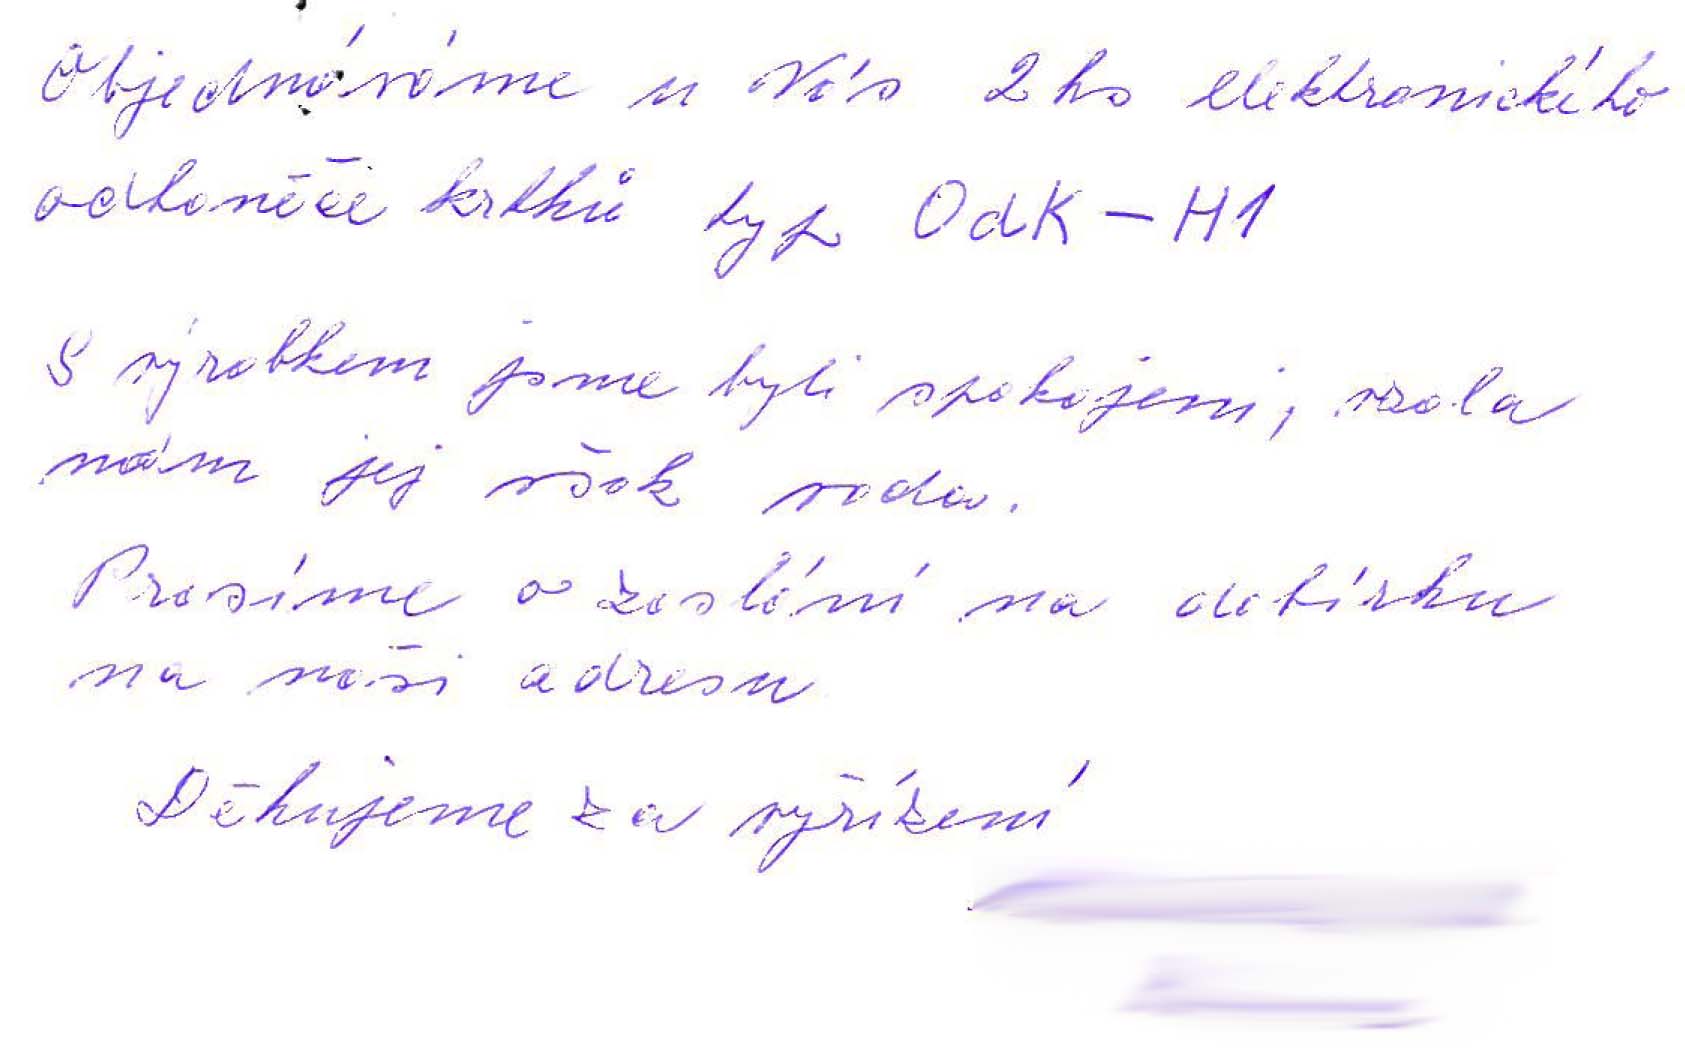 Objednáváme u Vás 2 ks elektronického
odháněče krtků typ OdK – H1
S výrobkem jsme byli spokojeni, vzala
nám jej však voda.
Prosíme o zaslání na dobírku
na naši adresu
Děkujeme za vyřízení